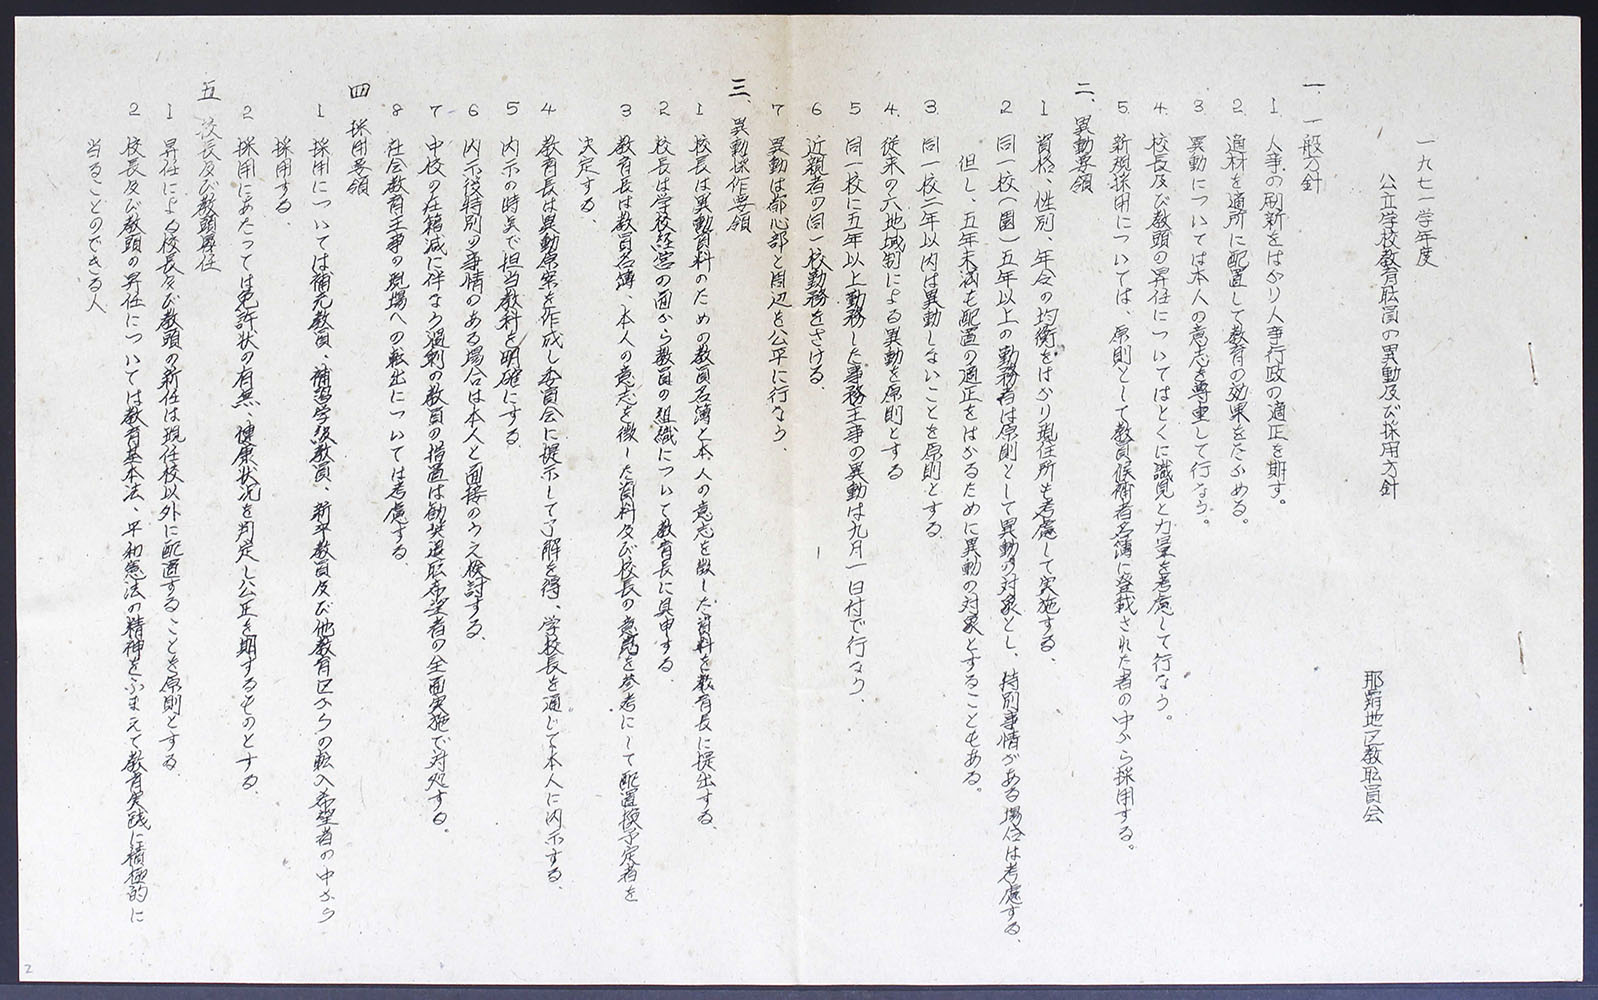 一九七一学年度
公立学校教育職員の異動及び採用方針
那覇地区教職員会
一、一般方針
1 人事の刷新をはかり人事行政の適正を期す。
2. 適材を適所に配置して教育の効果をたかめる。
3 異動については本人の意志を尊重して行なう。
4. 校長及び教頭の昇任についてはとくに識見と力量を考慮して行なう。
5. 新規採用については、原則として教員候補者名簿に登載された者の中から採用する。
二、異動要領
1 資格、性別、年令の均衡をはかり現住所も考慮して実施する、
2 同一校(園)五年以上の勤務者は原則として異動の対象とし、特別事情がある場合は考慮する、
但し、五年未満も配置の適正をはかるために異動の対象とすることもある。
3 同一校二年以内は異動しないことを原則とする、
4. 従来の六地域制による異動を原則とする
5 同一校に五年以上勤務した事務主事の異動は九月一日付で行なう、
6 近親者の同一校勤務をさける、
7 異動は都心部と周辺を公平に行なう、
三、異動操作要領
1 校長は異動資料のための教員名簿と本人の意志を徴した資料を教育長に提出する、
2 校長は学校経営の面から教員の組織について教育長に具申する、
3 教育長は教員名簿、本人の意志を徴した資料及び校長の意見を参考にして配置換予定者を
決定する、
4 教育長は異動原案を作成し委員会に提示して了解を得、学校長を通じて本人に内示する、
5 内示の時点で担当教科を明確にする
6 内示後特別の事情のある場合は本人と面接のうえ検討する、
7 中校の在籍減に伴なう過剰の教員の措置は勧奨退職希望者の全面実施で対処する。
8 社会教育主事の現場への転出については考慮する、
四 採用要領
1 採用については補充教員、補習学級教員、新卒教員及び他教育区からの転入希望者の中から
採用する、
2 採用にあたっては免許状の有無、健康状況を判定し公正を期するものとする、
五 校長及び教頭昇任
1 昇任による校長及び教頭の新任は現任校以外に配置することを原則とする、
2 校長及び教頭の昇任については教育基本法、平和憲法の精神をふまえて教育実践に積極的に
当ることのできる人
2